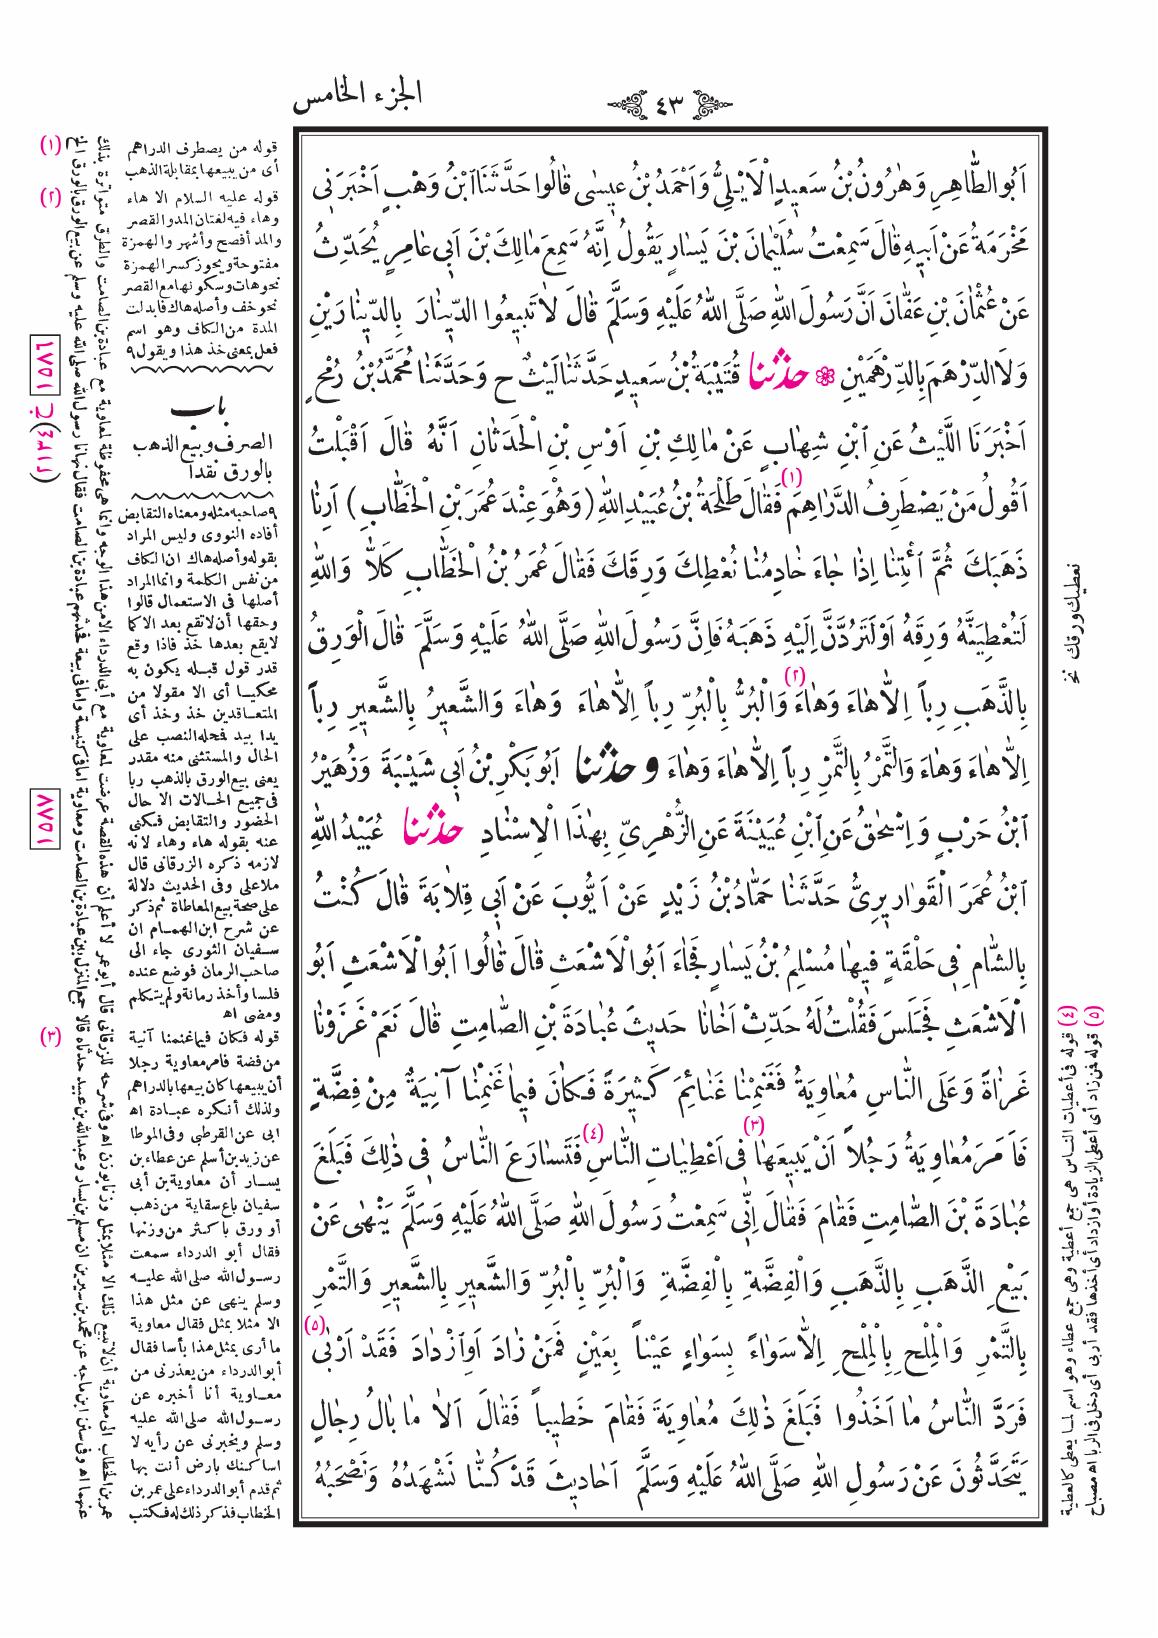 الجزء الخامس
٤٣
اَبُو الطَّاهِرِ وَهٰرُونُ بْنُ سَعِيدٍ الْاَيْلِىُّ وَاَحْمَدُ بْنُ عِيسٰى قَالُوا حَدَّثَنَا ابْنُ وَهْبٍ اَخْبَرَنِى
مَخْرَمَةُ عَنْ اَبِيهِ قَالَ سَمِعْتُ سُلَيْمَانَ بْنَ يَسَارٍ يَقُولُ اِنَّهُ سَمِعَ مَالِكَ بْنَ اَبِى عَامِرٍ يُحَدِّثُ
عَنْ عُثْمَانَ بْنِ عَفَّانَ اَنَّ رَسُولَ اللّٰهِ صَلَّى اللّٰهُ عَلَيْهِ وَسَلَّمَ قَالَ لَا تَبِيعُوا الدِّينَارَ بِالدِّينَارَيْنِ
وَلَا الدِّرْهَمَ بِالدِّرْهَمَيْنِ ❁ حدّثنا قُتَيْبَةُ بْنُ سَعِيدٍ حَدَّثَنَا لَيْثٌ ح وَحَدَّثَنَا مُحَمَّدُ بْنُ رُمْحٍ
اَخْبَرَنَا اللَّيْثُ عَنِ ابْنِ شِهَابٍ عَنْ مَالِكِ بْنِ اَوْسِ بْنِ الْحَدَثَانِ اَنَّهُ قَالَ اَقْبَلْتُ
اَقُولُ مَنْ يَصْطَرِفُ الدَّرَاهِمَ (١) فَقَالَ طَلْحَةُ بْنُ عُبَيْدِ اللّٰهِ (وَهُوَ عِنْدَ عُمَرَ بْنِ الْخَطَّابِ) اَرِنَا
ذَهَبَكَ ثُمَّ ائْتِنَا اِذَا جَاءَ خَادِمُنَا نُعْطِكَ وَرِقَكَ فَقَالَ عُمَرُ بْنُ الْخَطَّابِ كَلَّا وَاللّٰهِ
لَتُعْطِيَنَّهُ وَرِقَهُ اَوْ لَتَرُدَّنَّ اِلَيْهِ ذَهَبَهُ فَاِنَّ رَسُولَ اللّٰهِ صَلَّى اللّٰهُ عَلَيْهِ وَسَلَّمَ قَالَ الْوَرِقُ
بِالذَّهَبِ رِباً اِلَّا هَاءَ وَهَاءَ (٢) وَالْبُرُّ بِالْبُرِّ رِباً اِلَّا هَاءَ وَهَاءَ وَالشَّعِيرُ بِالشَّعِيرِ رِباً
اِلَّا هَاءَ وَهَاءَ وَالتَّمْرُ بِالتَّمْرِ رِباً اِلَّا هَاءَ وَهَاءَ وحدّثنا اَبُو بَكْرِ بْنُ اَبِى شَيْبَةَ وَزُهَيْرُ
ابْنُ حَرْبٍ وَ اِسْحٰقُ عَنِ ابْنِ عُيَيْنَةَ عَنِ الزُّهْرِىِّ بِهٰذَا الْاِسْنَادِ حدّثنا عُبَيْدُ اللّٰهِ
ابْنُ عُمَرَ الْقَوَارِيرِىُّ حَدَّثَنَا حَمَّادُ بْنُ زَيْدٍ عَنْ اَيُّوبَ عَنْ اَبِى قِلَابَةَ قَالَ كُنْتُ
بِالشَّامِ فِى حَلْقَةٍ فِيهَا مُسْلِمُ بْنُ يَسَارٍ فَجَاءَ اَبُو الْاَشْعَثِ قَالَ قَالُوا اَبُو الْاَشْعَثِ اَبُو
الْاَشْعَثِ فَجَلَسَ فَقُلْتُ لَهُ حَدِّثْ اَخَانَا حَدِيثَ عُبَادَةَ بْنِ الصَّامِتِ قَالَ نَعَمْ غَزَوْنَا
غَزَاةً وَعَلَى النَّاسِ مُعَاوِيَةُ فَغَنِمْنَا غَنَائِمَ كَثِيرَةً فَكَانَ فِيمَا غَنِمْنَا آنِيَةٌ مِنْ فِضَّةٍ
فَاَمَرَ مُعَاوِيَةُ رَجُلاً اَنْ يَبِيعَهَا (٣) فِى اَعْطِيَاتِ النَّاسِ (٤) فَتَسَارَعَ النَّاسُ فِى ذٰلِكَ فَبَلَغَ
عُبَادَةَ بْنَ الصَّامِتِ فَقَامَ فَقَالَ اِنِّى سَمِعْتُ رَسُولَ اللّٰهِ صَلَّى اللّٰهُ عَلَيْهِ وَسَلَّمَ يَنْهٰى عَنْ
بَيْعِ الذَّهَبِ بِالذَّهَبِ وَالْفِضَّةِ بِالْفِضَّةِ وَالْبُرِّ بِالْبُرِّ وَالشَّعِيرِ بِالشَّعِيرِ وَالتَّمْرِ
بِالتَّمْرِ وَالْمِلْحِ بِالْمِلْحِ اِلَّا سَوَاءً بِسَوَاءٍ عَيْناً بِعَيْنٍ فَمَنْ زَادَ اَوِ ازْدَادَ فَقَدْ اَرْبٰى (٥)
فَرَدَّ النَّاسُ مَا اَخَذُوا فَبَلَغَ ذٰلِكَ مُعَاوِيَةَ فَقَامَ خَطِيباً فَقَالَ اَلَا مَا بَالُ رِجَالٍ
يَتَحَدَّثُونَ عَنْ رَسُولِ اللّٰهِ صَلَّى اللّٰهُ عَلَيْهِ وَسَلَّمَ اَحَادِيثَ قَدْ كُنَّا نَشْهَدُهُ وَنَصْحَبُهُ
(١) قوله من يصطرف الدراهم
أى من يبيعها بمقابلة الذهب
(٢) قوله عليه السلام الا هاء
وهاء فيه لغتان المد والقصر
والمد أفصح وأشهر والهمزة
مفتوحة ويجوز كسر الهمزة
نحو هات وسكونها مع القصر
نحو خف وأصله هاك فابدلت
المدة من الكاف وهو اسم
فعل بمعنى خذ هذا ويقول ٩
باب
الصرف وبيع الذهب
بالورق نقدا
٩ صاحبه مثله ومعناه التقابض
أفاده النووى وليس المراد
بقوله وأصله هاك ان الكاف
من نفس الكلمة وانما المراد
أصلها فى الاستعمال قالوا
وحقها أن لا تقع بعد الا كما
لا يقع بعدها خذ فاذا وقع
قدر قول قبله يكون به
محكيا أى الا مقولا من
المتعاقدين خذ وخذ أى
يدا بيد فحله النصب على
الحال والمستثنى منه مقدر
يعنى بيع الورق بالذهب ربا
فى جميع الحالات الا حال
الحضور والتقابض فكنى
عنه بقوله هاء وهاء لانه
لازمه ذكره الزرقانى قال
ملا على وفى الحديث دلالة
على صحة بيع المعاطاة ثم ذكر
عن شرح ابن الهمام ان
سفيان الثورى جاء الى
صاحب الرمان فوضع عنده
فلسا وأخذ رمانة ولم يتكلم
ومضى اه
(٣) قوله فكان فيما غنمنا آنية
من فضة فامر معاوية رجلا
أن يبيعها كان بيعها بالدراهم
ولذلك أنكره عبادة اه
ابى عن القرطبى وفى الموطا
عن زيد بن أسلم عن عطاء بن
يسار أن معاوية بن أبى
سفيان باع سقاية من ذهب
أو ورق باكثر من وزنها
فقال أبو الدرداء سمعت
رسول الله صلى الله عليه
وسلم ينهى عن مثل هذا
الا مثلا بمثل فقال معاوية
ما أرى بمثل هذا بأسا فقال
أبو الدرداء من يعذرنى من
معاوية أنا أخبره عن
رسول الله صلى الله عليه
وسلم ويخبرنى عن رأيه لا
اساكنك بارض أنت بها
ثم قدم أبو الدرداء على عمر بن
الخطاب فذكر ذلك له فكتب
عمر بن الخطاب الى معاوية أن لا تبيع ذلك الا مثلا بمثل وزنا بوزن اه وفى شرحه للزرقانى قال أبو عمر لا أعلم أن هذه القصة عرضت لمعاوية مع أبى الدرداء الا من هذا الوجه وانما هى محفوظة لمعاوية مع عبادة بن الصامت والطرق متواترة بذلك
عنهما اه وفى سنن ابن ماجه عن محمد بن سيرين ان مسلم بن يسار وعبدالله بن عبيد حدثاه قالا جمع المنزل بين عبادة بن الصامت ومعاوية اما فى كنيسة واما فى بيعة فحدثهم عبادة بن الصامت فقال نهانا رسول الله صلى الله عليه وسلم عن بيع الورق بالورق الخ
نعطيك ورقك نخ
(٤) قوله فى أعطيات الناس هى جمع أعطية وهى جمع عطاء وهو اسم لما يعطى كالعطية
(٥) قوله فمن زاد أى أعطى الزيادة أو ازداد أى أخذها فقد أربى أى دخل فى الربا اه مصباح